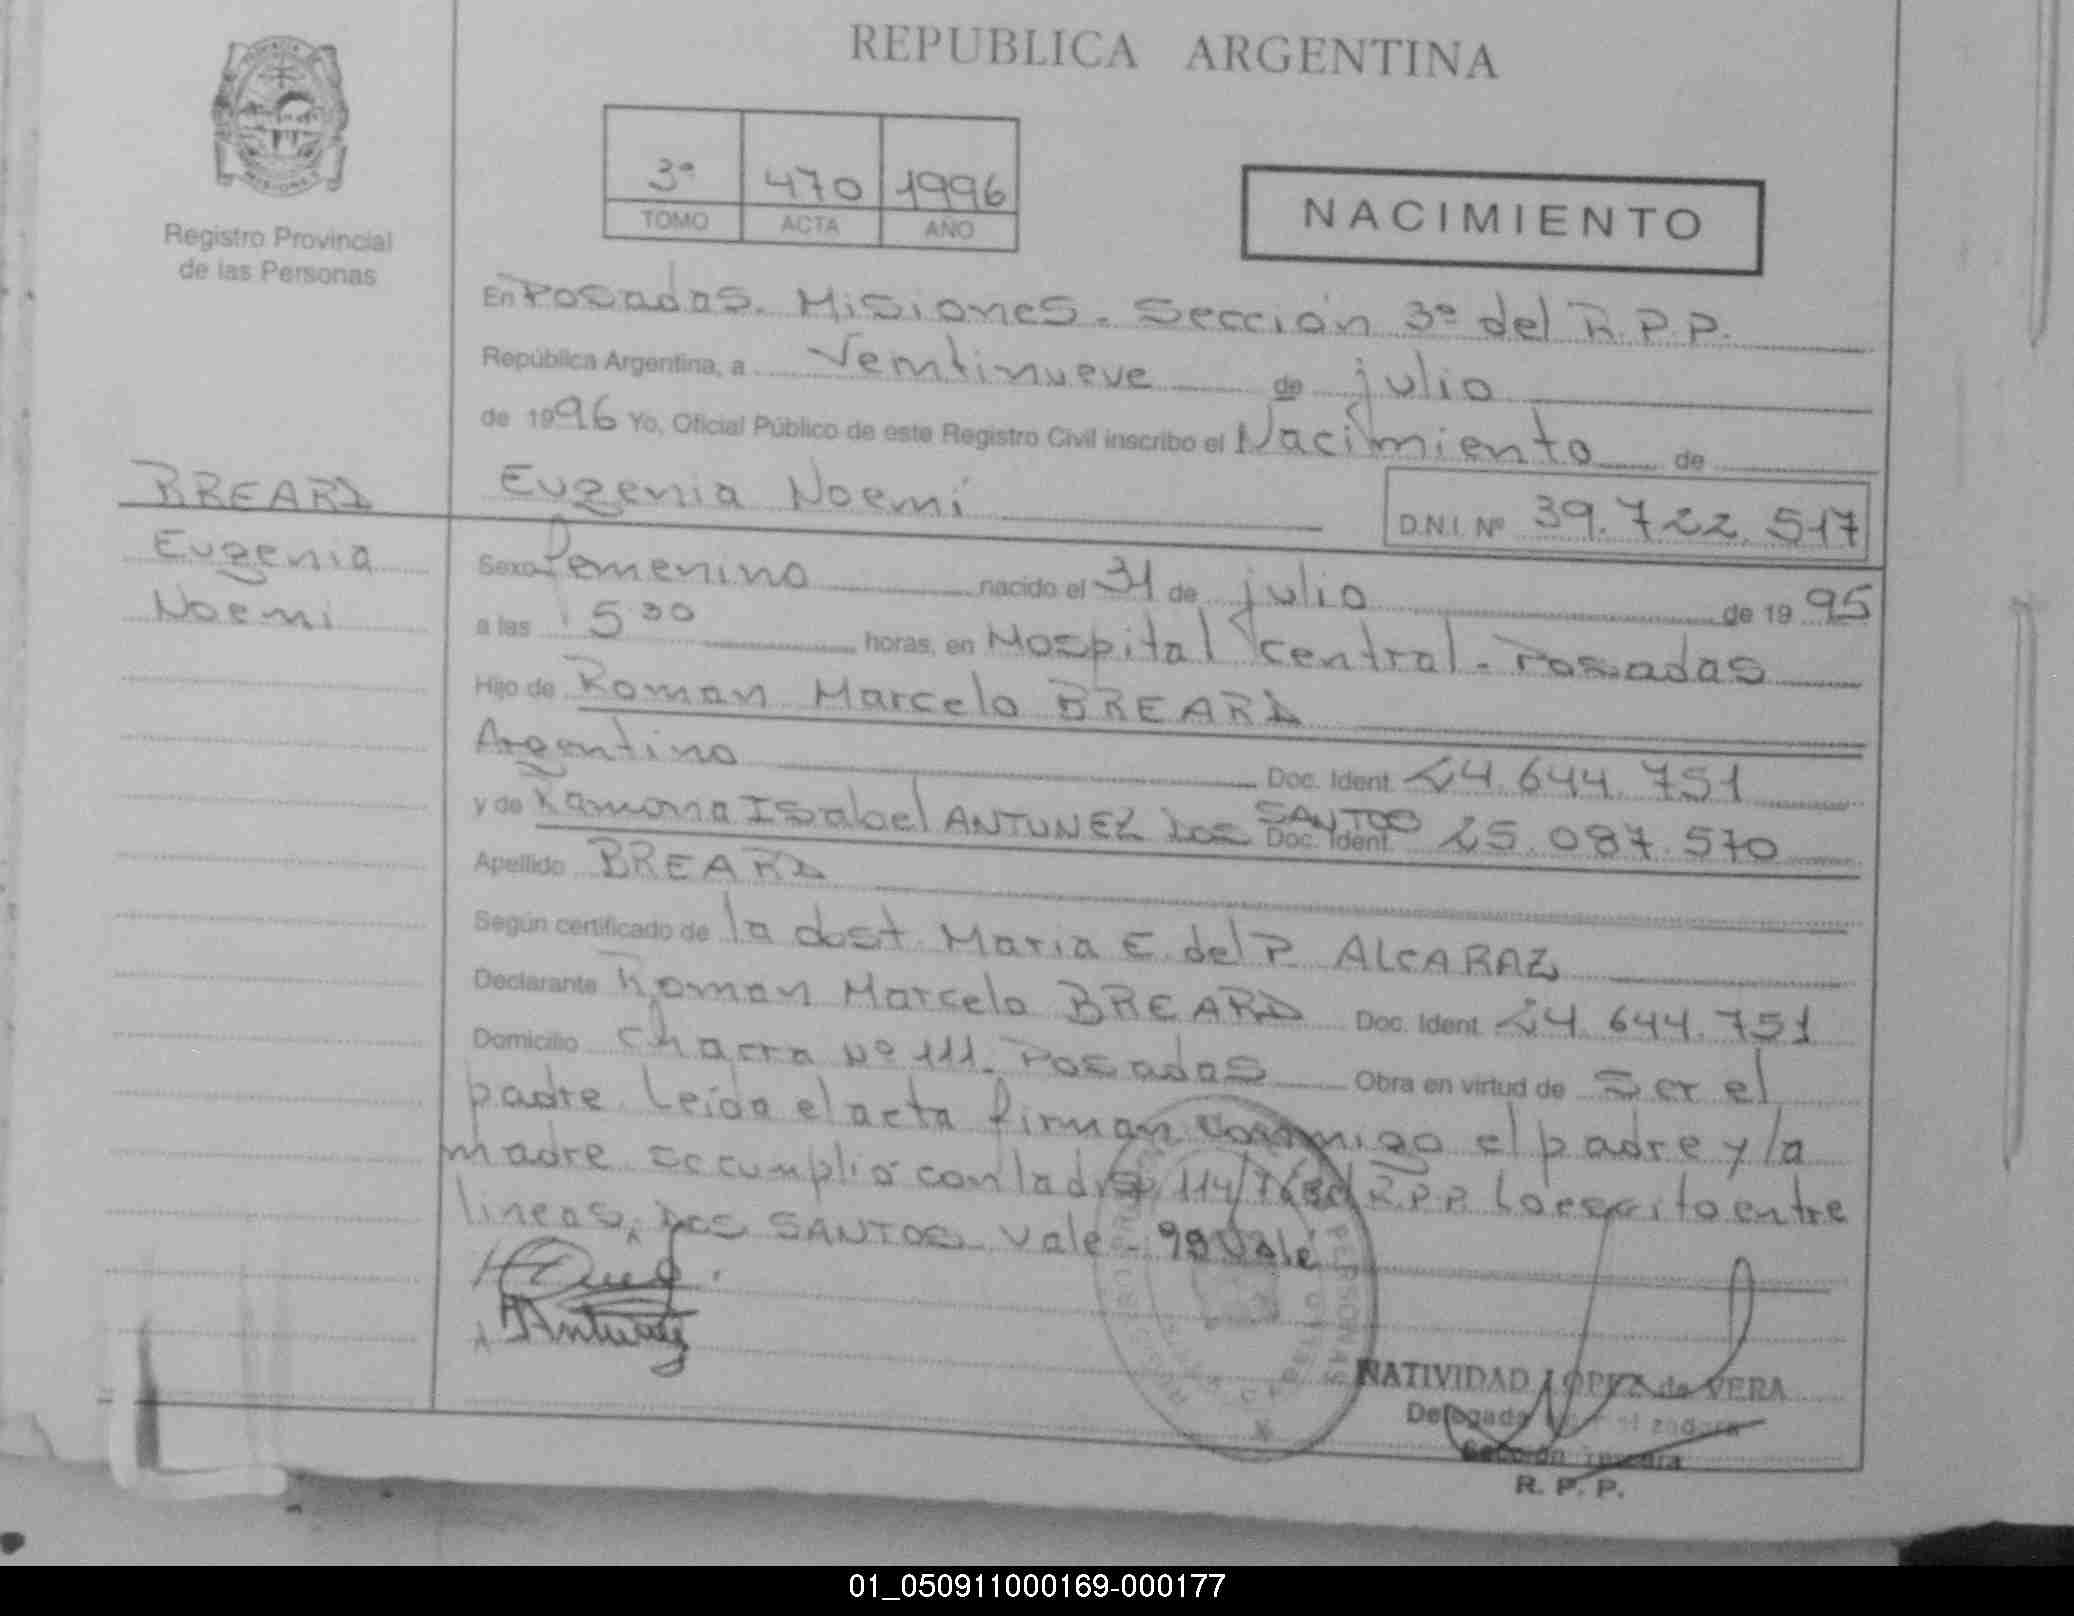 REPUBLICA ARGENTINA
MISIONES
Registro Provincial
de las Personas
3ª 470 1996
TOMO ACTA AÑO
NACIMIENTO
En Posadas. Misiones. Sección 3ª del R.P.P.
República Argentina, a Veintinueve de julio
de 1996 Yo, Oficial Público de este Registro Civil inscribo el Nacimiento de
BREARD
Eugenia
Noemi
Eugenia Noemí
D.N.I. Nº 39.722.517
Sexo Femenino nacido el 31 de julio de 1995
a las 5 30 horas, en Hospital Central. Posadas
Hijo de Roman Marcelo BREARD
Argentino Doc. Ident. 24.644.751
y de Ramona Isabel ANTUNEZ DOS SANTOS Doc. Ident. 25.087.570
Apellido BREARD
Según certificado de la obst. Maria E. del P. ALCARAZ
Declarante Roman Marcelo BREARD Doc. Ident. 24.644.751
Domicilio Chacra Nº 111. Posadas Obra en virtud de Ser el
padre. Leída el acta firman conmigo el padre y la
madre se cumplió con la disp. 114/ R.P.P. Lo escrito entre
lineas, DOS SANTOS vale. Vale
NATIVIDAD LOPEZ de VERA
Delegada
Sección Tercera
R. P. P.
01_050911000169-000177